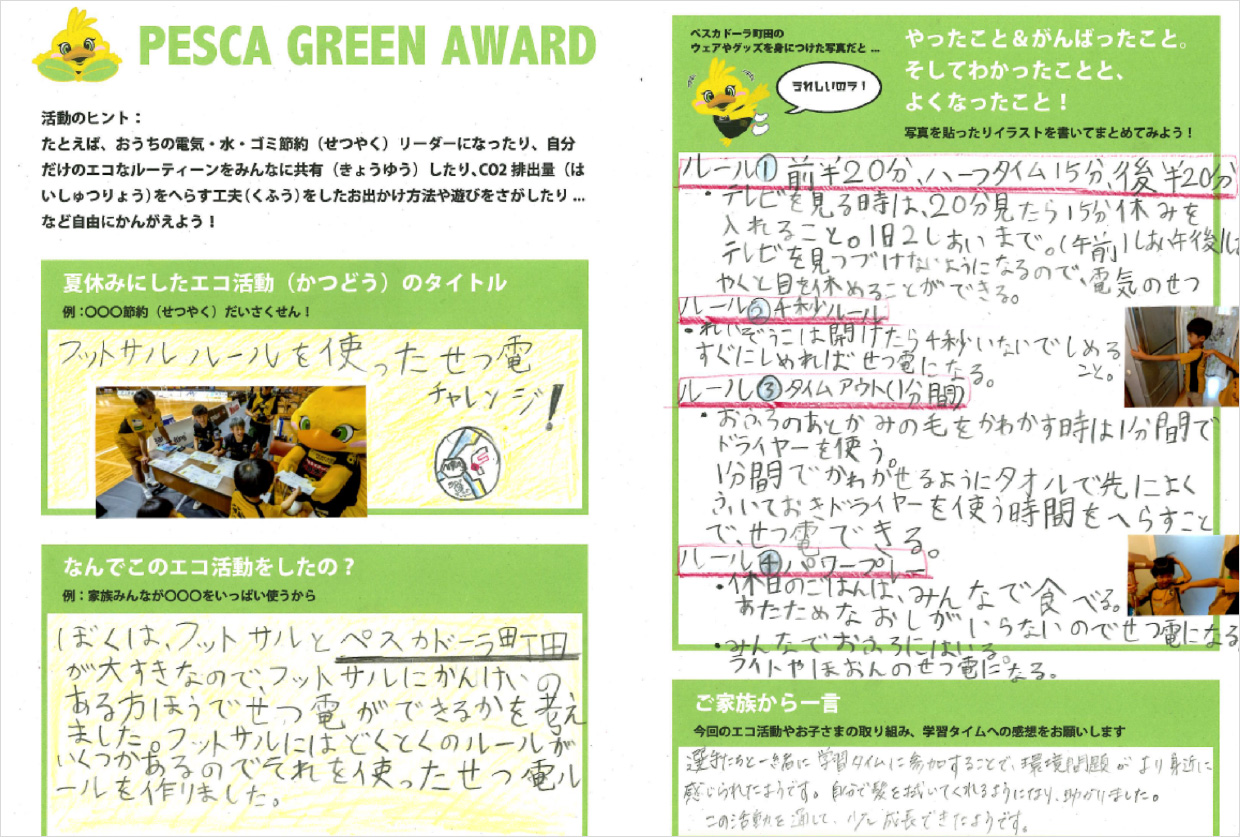 PESCA GREEN AWARD
活動のヒント：
たとえば、おうちの電気・水・ゴミ節約（せつやく）リーダーになったり、自分
だけのエコなルーティーンをみんなに共有（きょうゆう）したり、CO2 排出量（は
いしゅつりょう）をへらす工夫（くふう）をしたお出かけ方法や遊びをさがしたり ...
など自由にかんがえよう！
夏休みにしたエコ活動（かつどう）のタイトル
例：〇〇〇節約（せつやく）だいさくせん！
フットサルルールを使ったせつ電
チャレンジ！
なんでこのエコ活動をしたの？
例：家族みんなが〇〇〇をいっぱい使うから
ぼくは、フットサルとペスカドーラ町田
が大すきなので、フットサルにかんけいの
ある方ほうでせつ電ができるかを考え
ました。フットサルにはどくとくのルールが
いくつかあるのでそれを使ったせつ電ル
ールを作りました。
ペスカドーラ町田の
ウェアやグッズを身につけた写真だと ...
うれしいのラ！
やったこと＆がんばったこと。
そしてわかったことと、
よくなったこと！
写真を貼ったりイラストを書いてまとめてみよう！
ルール① 前半20分、ハーフタイム15分、後半20分
・テレビを見る時は、20分見たら15分休みを
入れること。1日2しあいまで。(午前1しあい午後1し
テレビを見つづけないようになるので、電気のせつ
やくと目を休めることができる。
ルール② 4秒ルール
・れいぞうこは開けたら4秒いないでしめる
こと。
すぐにしめればせつ電になる。
ルール③ タイムアウト(1分間)
・おふろのあとかみの毛をかわかす時は1分間で
ドライヤーを使う。
1分間でかわかせるようにタオルで先によく
ふいておきドライヤーを使う時間をへらすこと
で、せつ電できる。
ルール④ パワープレー
・休日のごはんは、みんなで食べる。
あたためなおしがいらないのでせつ電になる
・みんなでおふろにはいる。
ライトやほおんのせつ電になる。
ご家族から一言
今回のエコ活動やお子さまの取り組み、学習タイムへの感想をお願いします
選手たちと一緒に学習タイムに参加することで、環境問題がより身近に
感じられたようです。自分で髪を拭いてくれるようになり、助かりました。
この活動を通して、少し成長できたようです。